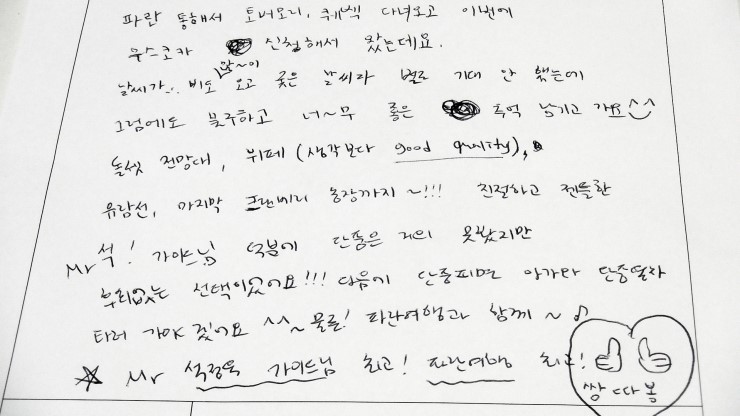 파란 통해서 토버모리, 퀘벡 다녀오고 이번에
무스코카 신청해서 왔는데요.
날씨가.. 비도 많~이 오고 궂은 날씨라 별로 기대 안 했는데
그럼에도 불구하고 너~무 좋은 추억 남기고 가요^^
돌셋 전망대, 뷔페 (생각보다 good quality),
유람선, 마지막 크랜베리 농장까지~!!! 친절하고 젠틀한
Mr 석! 가이드님 덕분에 단풍은 거의 못봤지만
후회없는 선택이었어요!!! 다음에 단풍피면 아가와 단풍열차
타러 가야 겠어요 ^^~ 물론! 파란여행과 함께~♪
☆ Mr 석정욱 가이드님 최고! 파란여행 최고!
쌍따봉